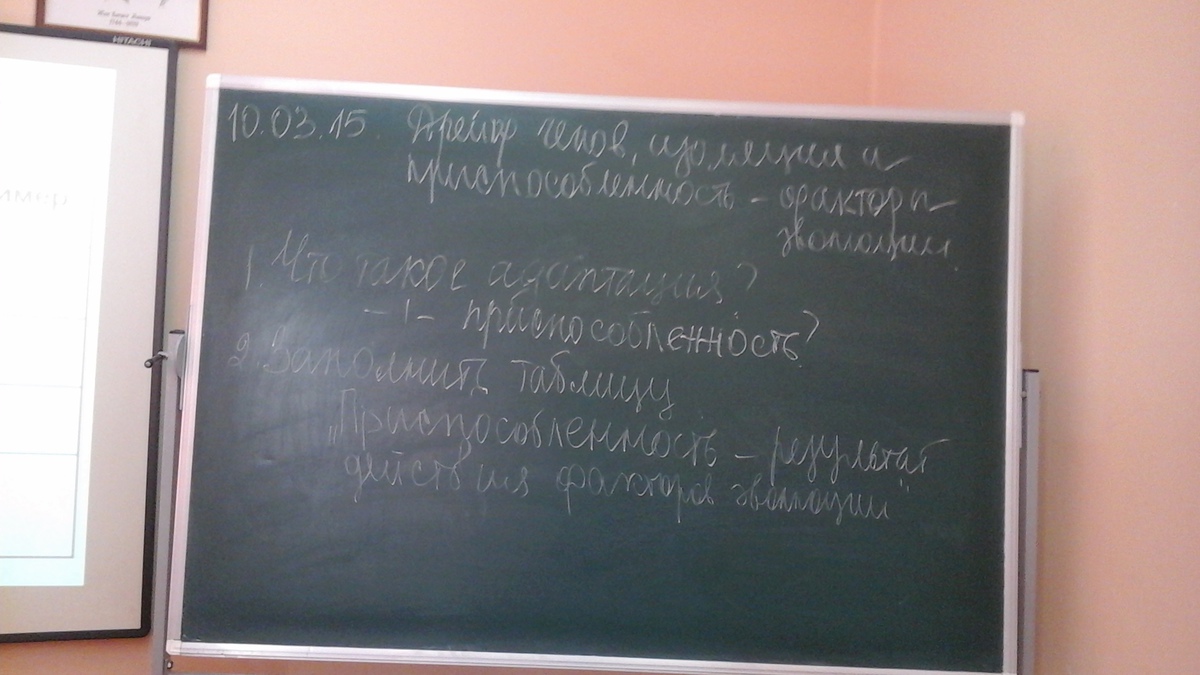 HITACHI
имер
10.03.15. Дрейф генов, изоляция и
приспособленность – факторы
эволюции.
1. Что такое адаптация?
–"– приспособленность?
2. Заполнить таблицу
„Приспособленность – результат
действия факторов эволюции"